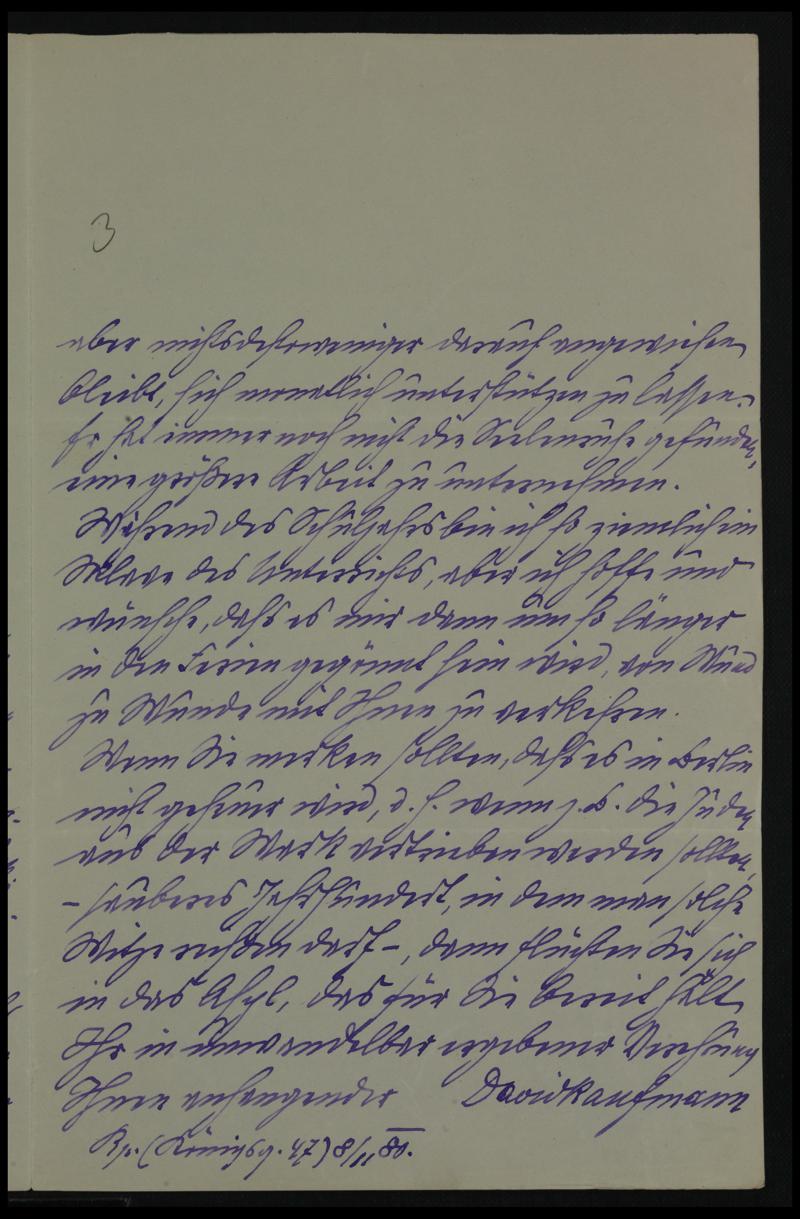 3
aber nichtsdestoweniger darauf angewiesen
bleibt, sich monatlich unterstützen zu lassen.
Er hat immer noch nicht die Seelenruhe gefunden,
eine größere Arbeit zu unternehmen.
Während des Schuljahrs bin ich so ziemlich ein
Sklave des Unterrichts, aber ich hoffe und
wünsche, dass es mir dann um so länger
in den Ferien gegönnt sein wird, von Mund
zu Munde mit Ihnen zu verkehren.
Wenn Sie merken sollten, dass es in Berlin
nicht geheuer wird, d. h. wenn z. B. die Juden
aus der Mark vertrieben werden sollten,
– sauberes Jahrhundert, in dem man solche
Witze machen darf –, dann flüchten Sie sich
in das Asyl, das für Sie bereit hält
Ihr in unwandelbar ergebener Verehrung
Ihnen anhangender David Kaufmann
Bp. (Königsg. 47) 8/11 80.